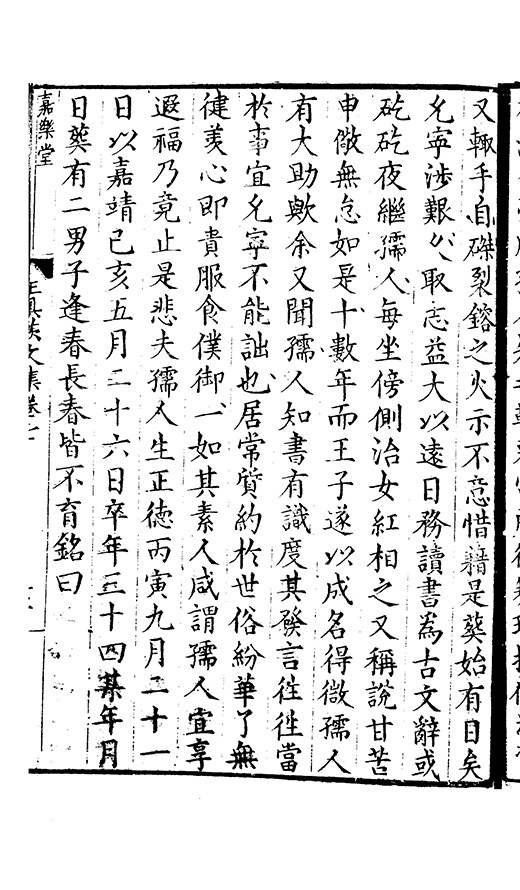 又輒手自磔裂鎔之火示不意惜藉是葬始有日矣
允寧涉艱以取志益大以遠日務讀書為古文辭或
矻矻夜繼孺人每坐傍側治女紅相之又稱說甘苦
申儆無怠如是十數年而王子遂以成名得微孺人
有大助歟余又聞孺人知書有識度其發言徃徃當
於事宜允寧不能詘也居常質約於世俗紛華了無
徤羡心即貴服食僕御一如其素人咸謂孺人宜享
遐福乃竟止是悲夫孺人生正德丙寅九月二十一
日以嘉靖己亥五月二十六日卒年三十四某年月
日葬有二男子逢春長春皆不育銘曰
嘉樂堂
文集卷七